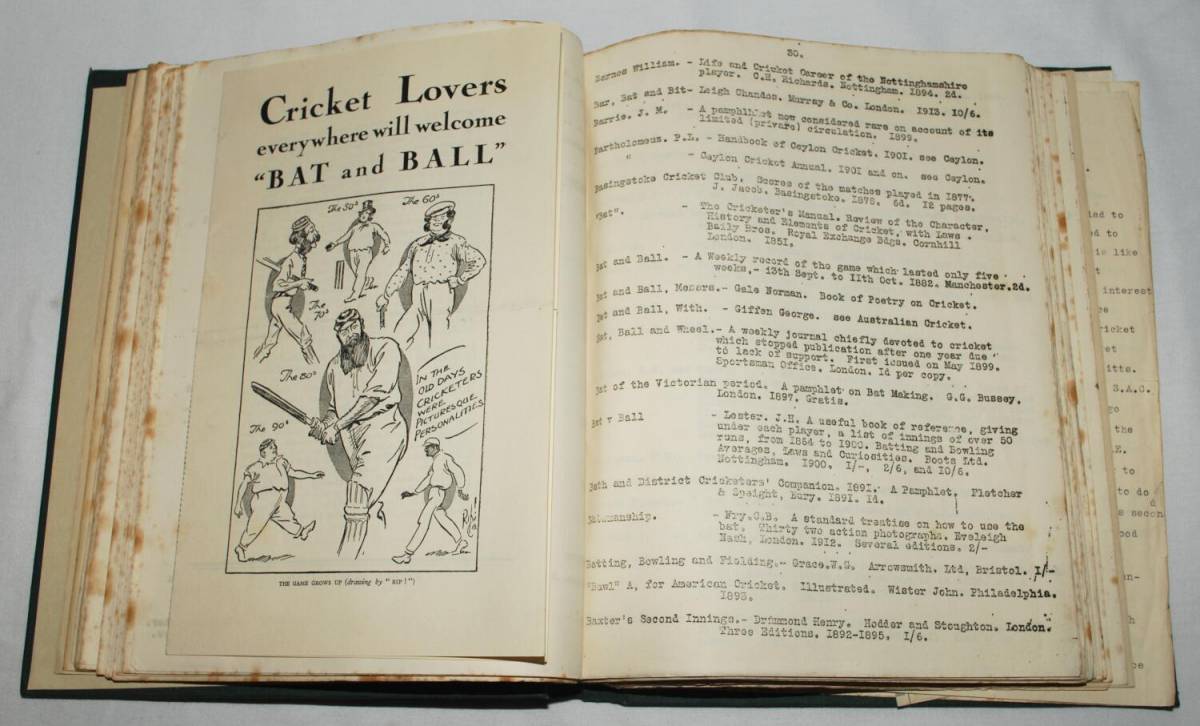 Cricket Lovers
everywhere will welcome
"BAT and BALL"
The 50s
The 60s
The 70s
The 80s
The 90s
IN THE
OLD DAYS
CRICKETERS
WERE
PICTURESQUE
PERSONALITIES
THE GAME GROWS UP (drawing by "RIP!")
30.
Barnes William. - Life and Cricket Career of the Nottinghamshire
player. C.H. Richards. Nottingham. 1894. 2d.
Bar, Bat and Bit- Leigh Chandos. Murray & Co. London. 1913. 10/6.
Barrie. J. M. - A pamphlet now considered rare on account of its
limited (private) circulation. 1899.
Bartholomeus. P.L. - Handbook of Ceylon Cricket. 1901. see Ceylon.
" - Ceylon Cricket Annual. 1901 and on. see Ceylon.
Basingstoke Cricket Club. Scores of the matches played in 1877.
J. Jacob. Basingstoke. 1878. 6d. 12 pages.
"Bat". - The Cricketer's Manual. Review of the Character,
History and Elements of Cricket, with Laws.
Baily Bros. Royal Exchange Bdgs. Cornhill
London. 1851.
Bat and Ball. - A Weekly record of the game which lasted only five
weeks,- 13th Sept. to 11th Oct. 1882. Manchester.2d.
Bat and Ball, Messrs.- Gale Norman. Book of Poetry on Cricket.
Bat and Ball, With. - Giffen George. see Australian Cricket.
Bat, Ball and Wheel.- A weekly journal chiefly devoted to cricket
which stopped publication after one year due
to lack of support. First issued on May 1899.
Sportsman Office. London. 1d per copy.
Bat of the Victorian period. A pamphlet on Bat Making. G.G. Bussey.
London. 1897. Gratis.
Bat v Ball - Lester. J.H. A useful book of reference, giving
under each player, a list of innings of over 50
runs, from 1864 to 1900. Batting and Bowling
Averages, Laws and Curiosities. Boots Ltd.
Nottingham. 1900. 1/-, 2/6, and 10/6.
Bath and District Cricketers' Companion. 1891. A Pamphlet. Fletcher
& Speight, Bury. 1891. 1d.
Batsmanship. - Fry.C.B. A standard treatise on how to use the
bat. Thirty two action photographs. Eveleigh
Nash, London. 1912. Several editions. 2/-
Batting, Bowling and Fielding.- Grace.W.G. Arrowsmith. Ltd, Bristol. 1/-
"Bawl" A, for American Cricket. Illustrated. Wister John. Philadelphia.
1893.
Baxter's Second Innings.- Drummond Henry. Hodder and Stoughton. London.
Three Editions. 1892-1895. 1/6.
to
to
is like
interest
S.A.C.
the
to
to do